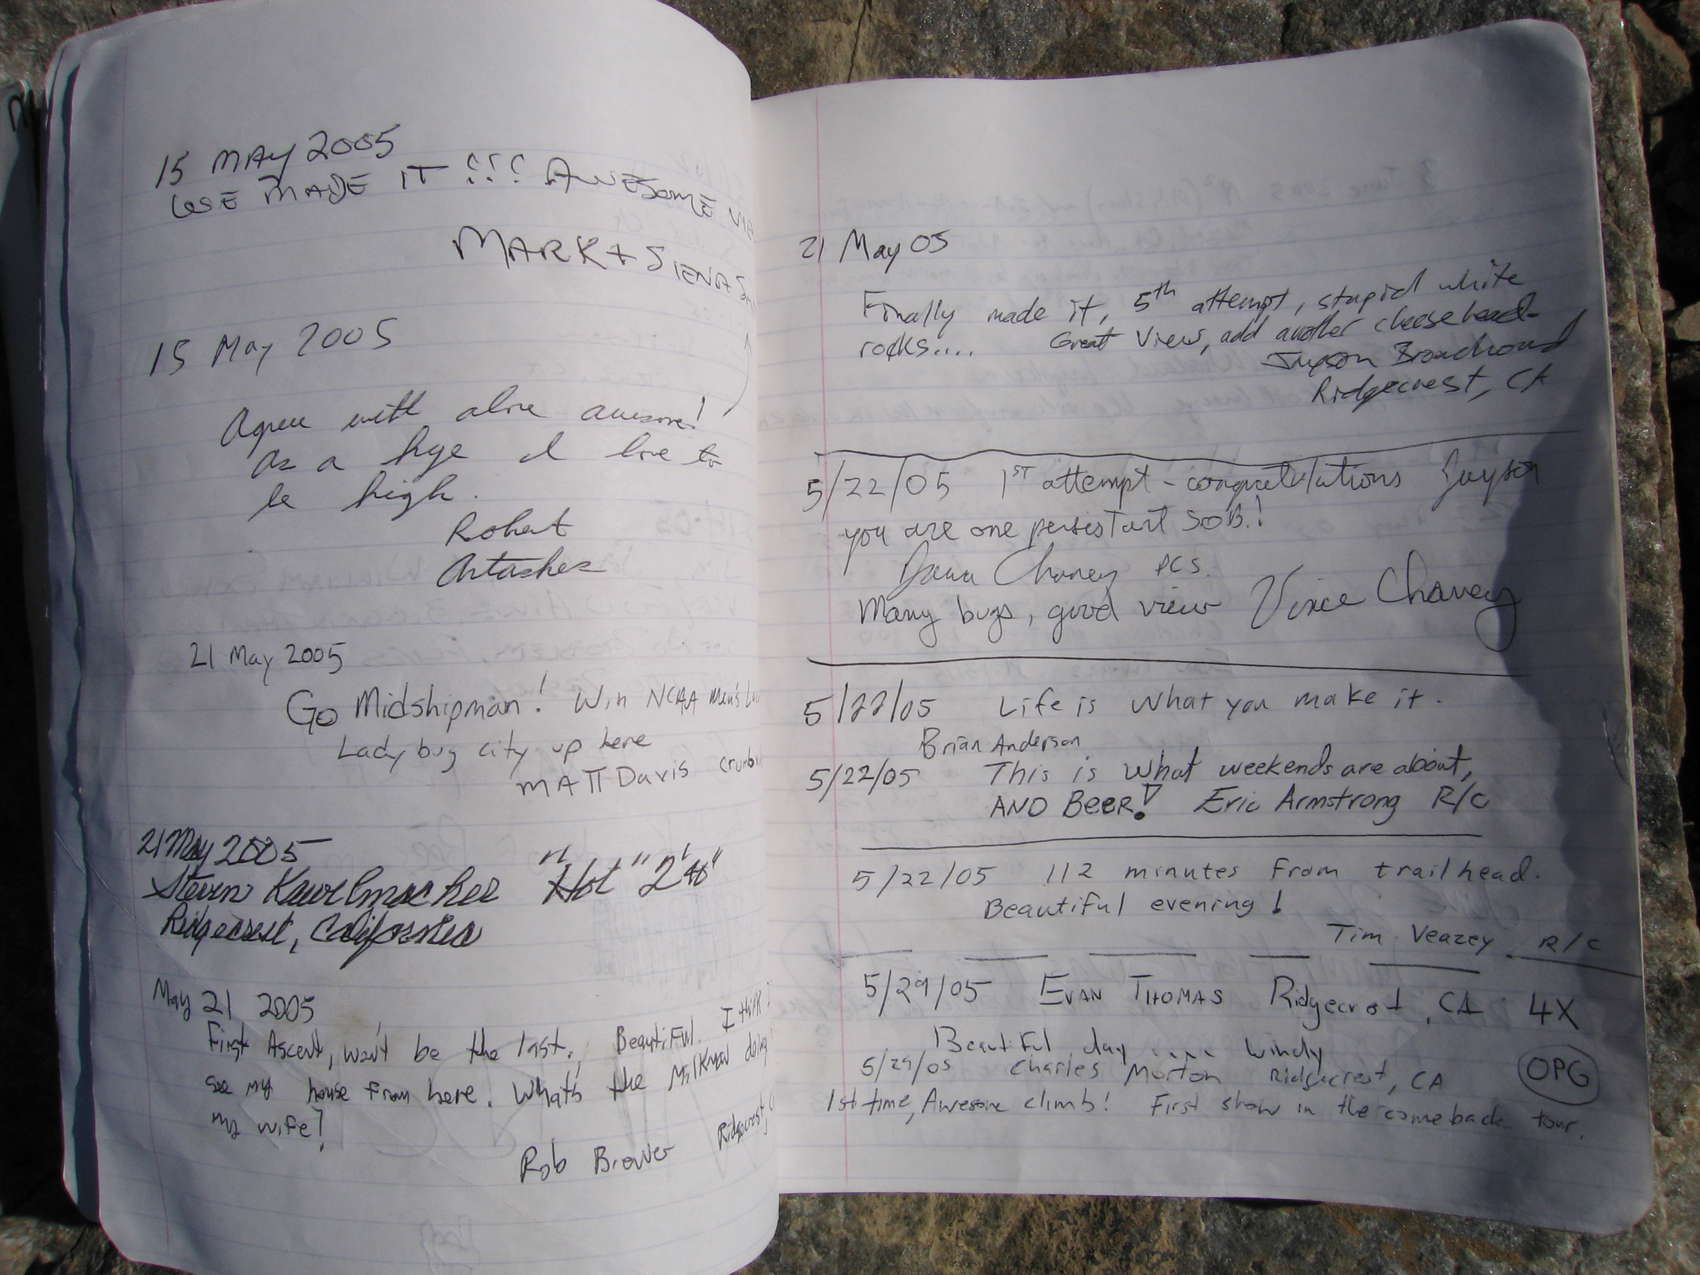 15 MAY 2005
WE MADE IT !!! AWESOME
MARK + SIENA
15 May 2005
Agree with above awesome!
As a hge I love to
be high.
Robert
21 May 2005
Go Midshipman! Win NCAA Men's
Lady bug city up here
MATT Davis
21 May 2005
Steven "Hot"
Ridgecrest, California
May 21 2005
First Ascent, won't be the last. Beautiful. I think
see my house from here. What's the Milkman doing
my wife?
Rob Brower Ridgecrest,
21 May 05
Finally made it, 5th attempt, stupid white
rocks.... Great View, add another cheesehead-
Jayson
Ridgecrest, CA
5/22/05 1ST attempt - congratulations Jayson
you are one persistant SOB!
Chaney PCS.
Many bugs, good view Vince Chaney
5/22/05 Life is what you make it.
Brian Anderson
5/22/05 This is what weekends are about,
AND BEER! Eric Armstrong R/C
5/22/05 112 minutes from trailhead.
Beautiful evening!
Tim Veazey R/C
5/29/05 EVAN THOMAS Ridgecrest, CA 4X
Beautiful day .... windy
5/29/05 Charles Morton Ridgecrest, CA OPG
1st time, Awesome climb! First show in the comeback tour.